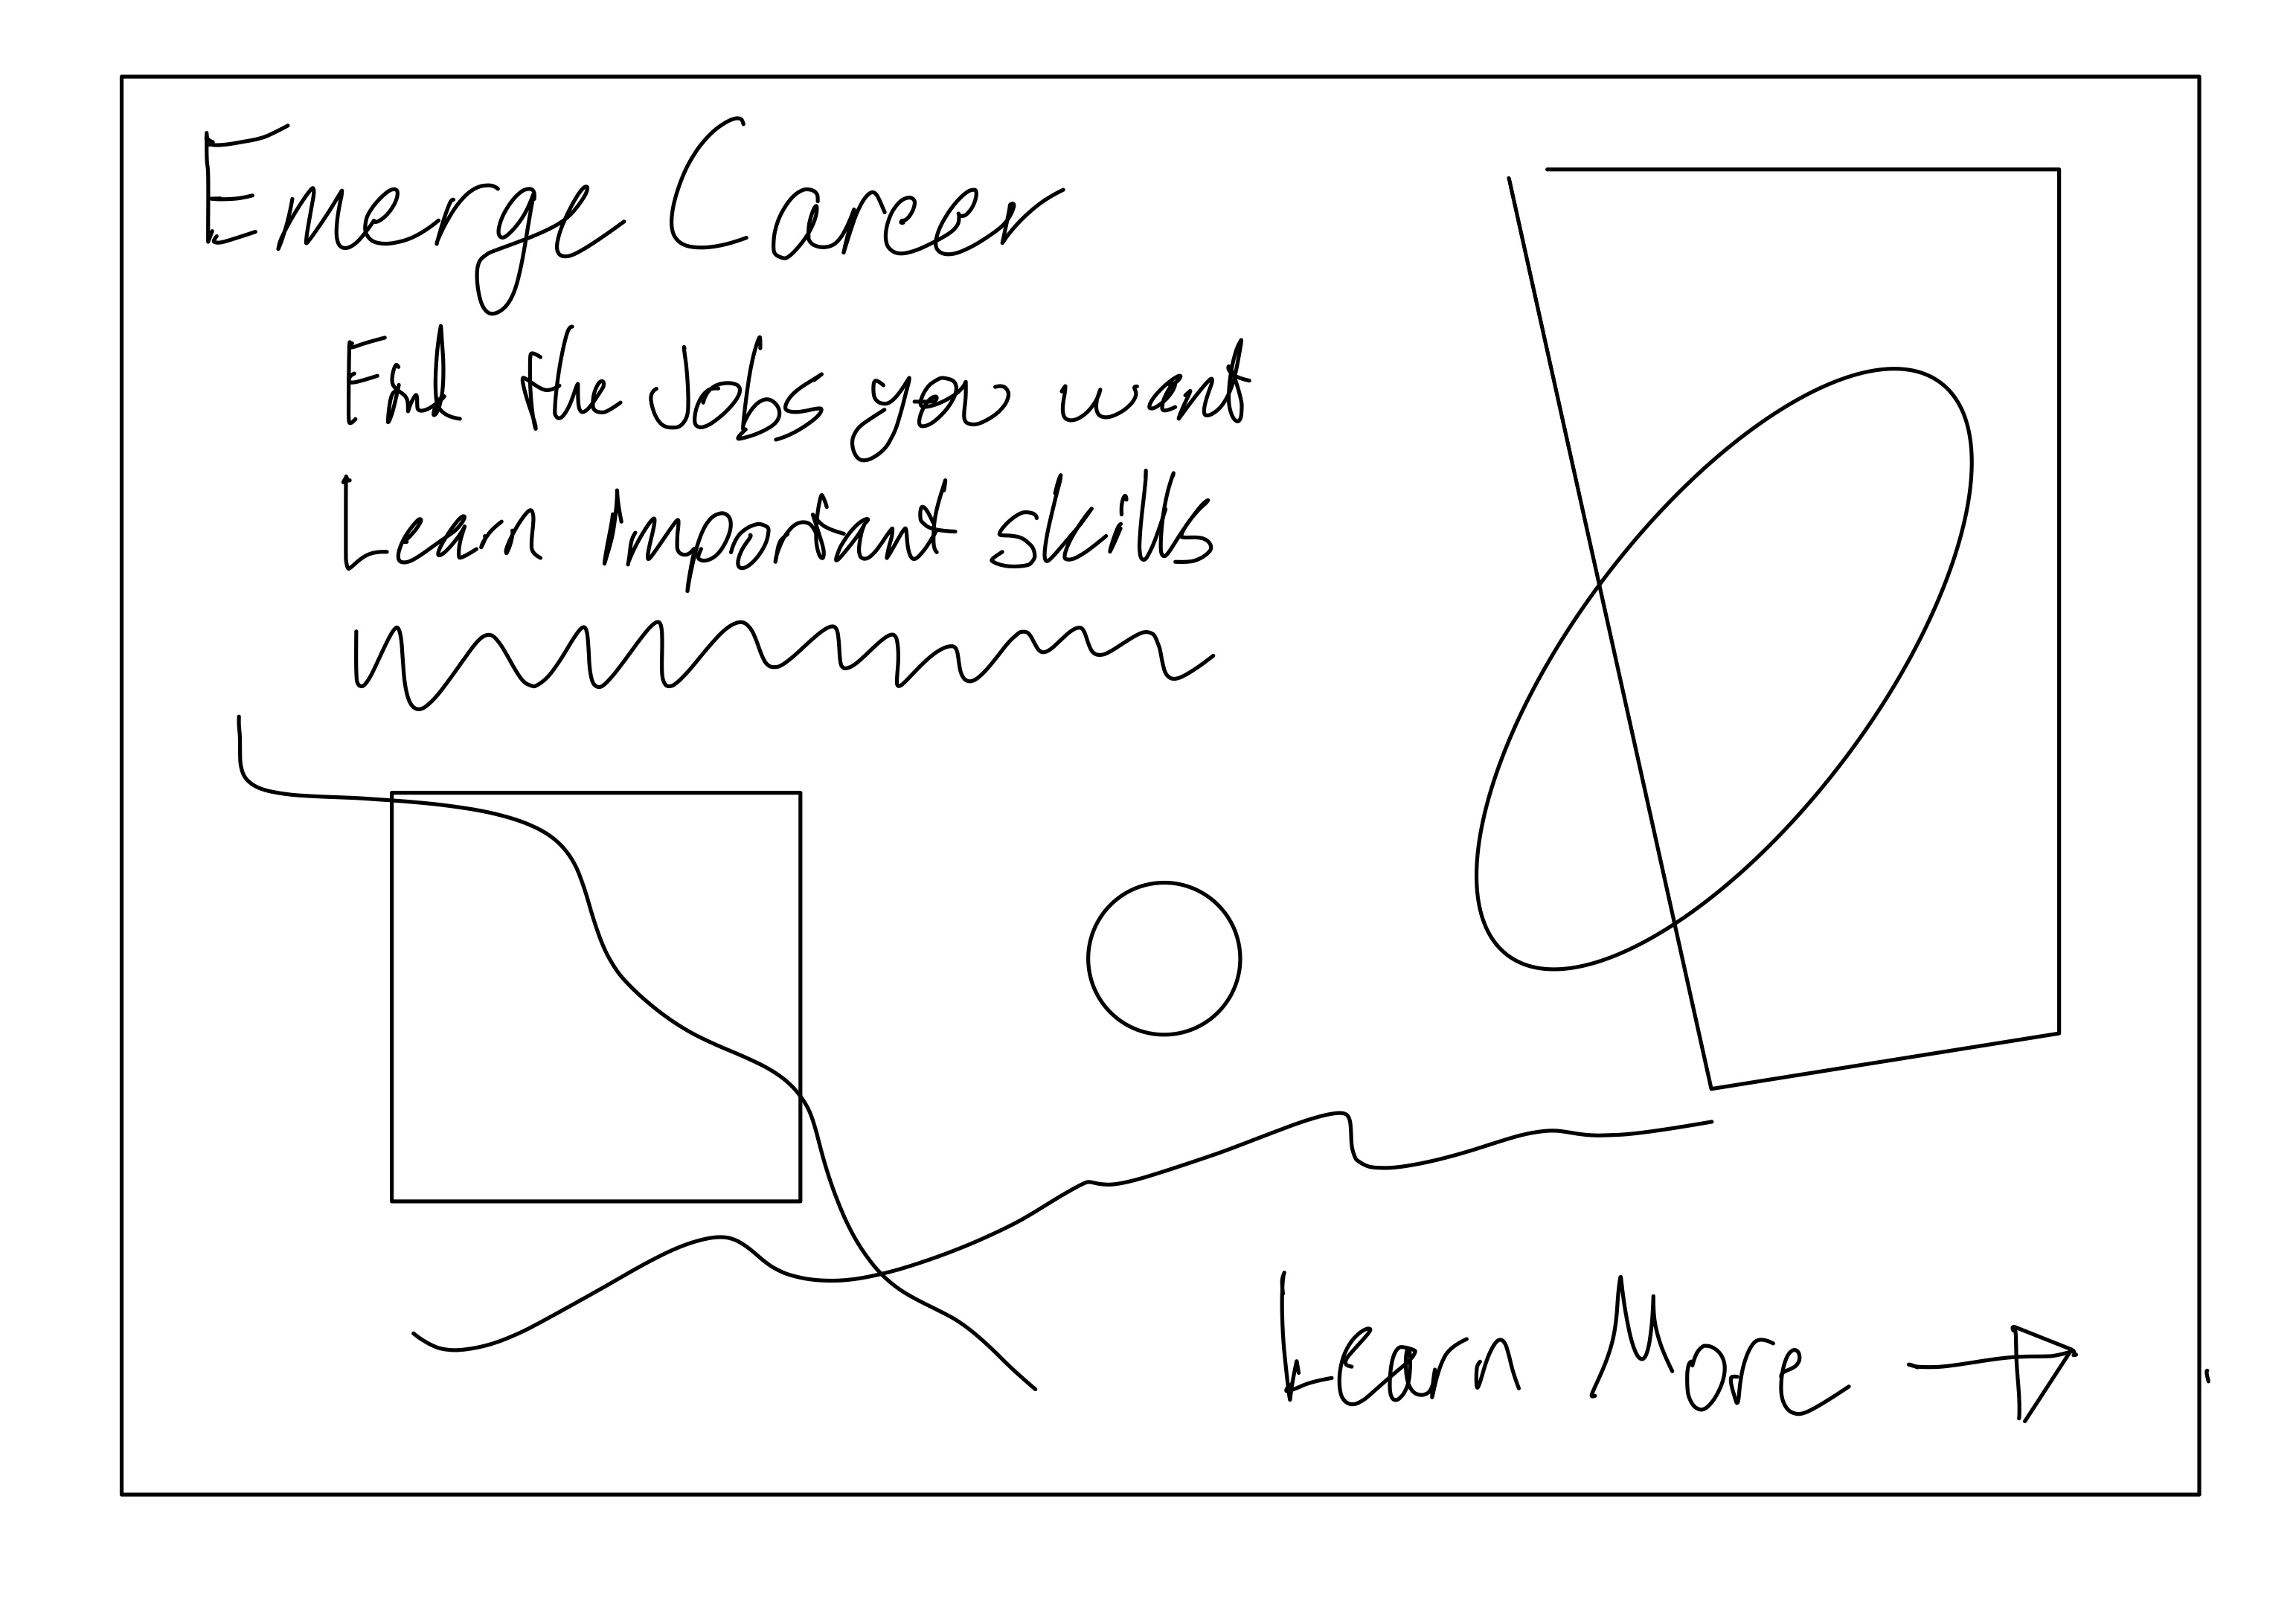 Emerge Career
Find the Jobs you want
Learn Important skills
Learn More